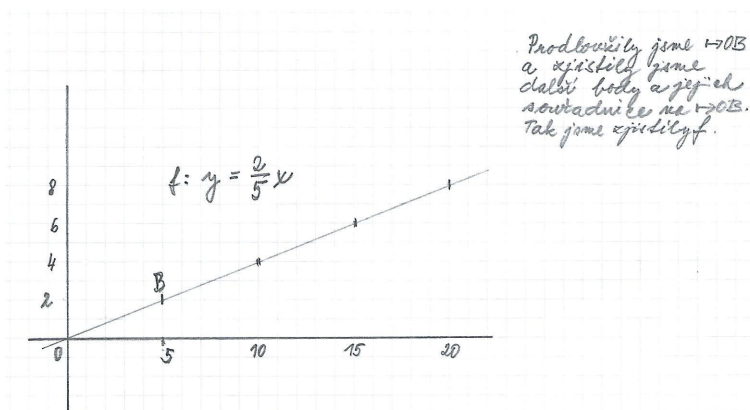 Prodloužily jsme ↦OB
a zjistily jsme
další body a jejich
souřadnice na ↦OB.
Tak jsme zjistily f.
f: y = 2/5 x
8
6
4
B
2
0 5 10 15 20